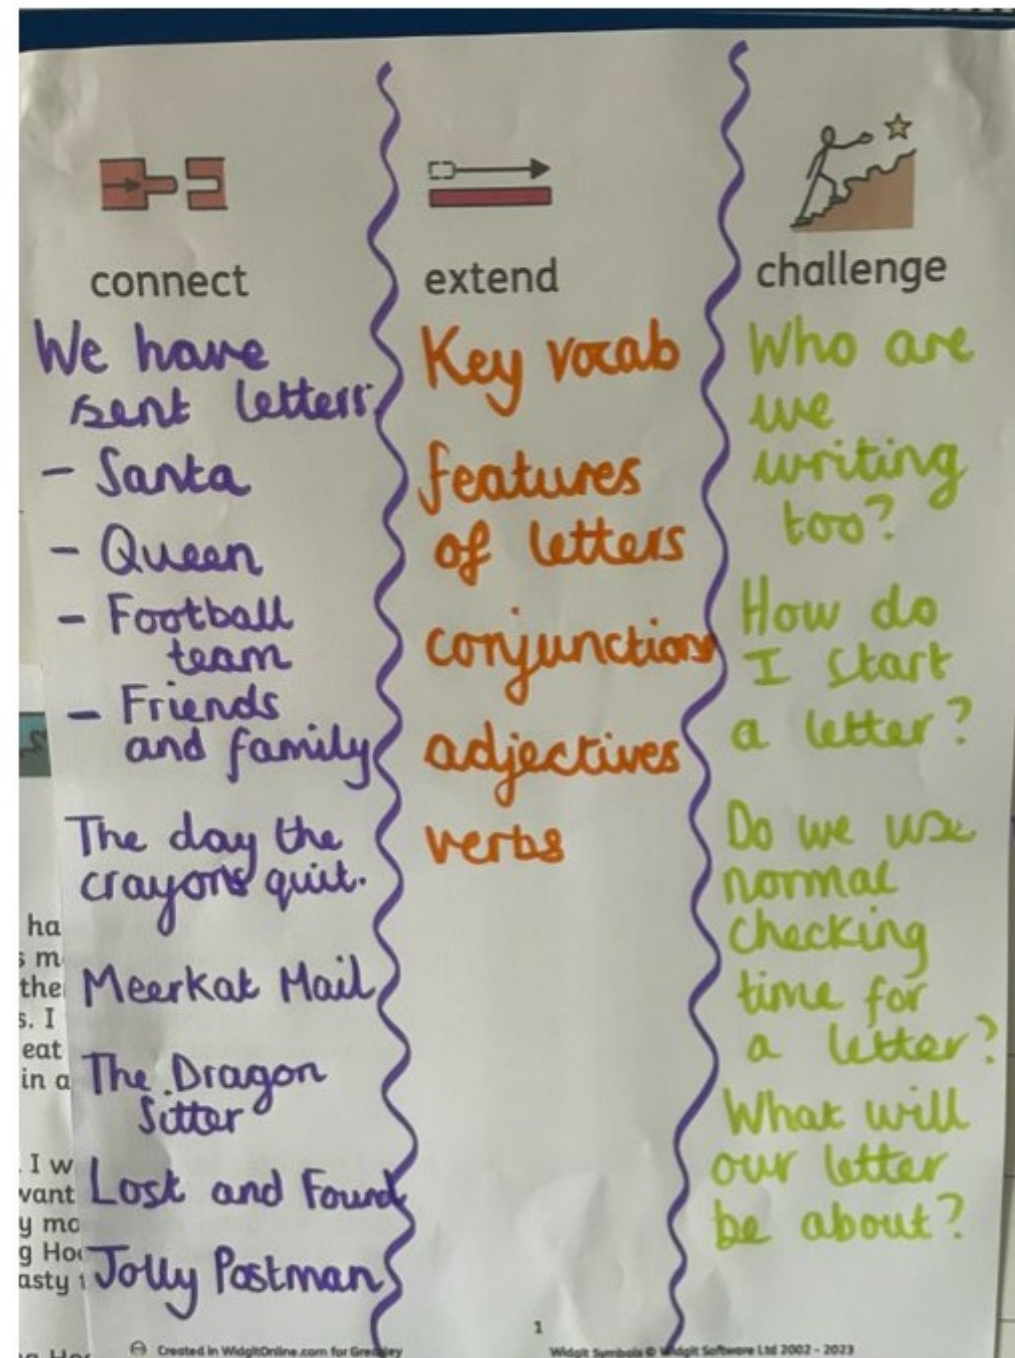 connect
We have
sent letters
- Santa
- Queen
- Football
team
- Friends
and family
The day the
crayons quit.
Meerkat Mail
The Dragon
Sitter
Lost and Found
Jolly Postman
extend
Key vocab
features
of letters
conjunctions
adjectives
verbs
challenge
Who are
we
writing
too?
How do
I start
a letter?
Do we use
normal
checking
time for
a letter?
What will
our letter
be about?
ha
s m
the
s. I
eat
in a
. I w
vant
y mo
g Ho
asty
1
Created in WidgitOnline.com for
Widgit Symbols © Widgit Software Ltd 2002 - 2023